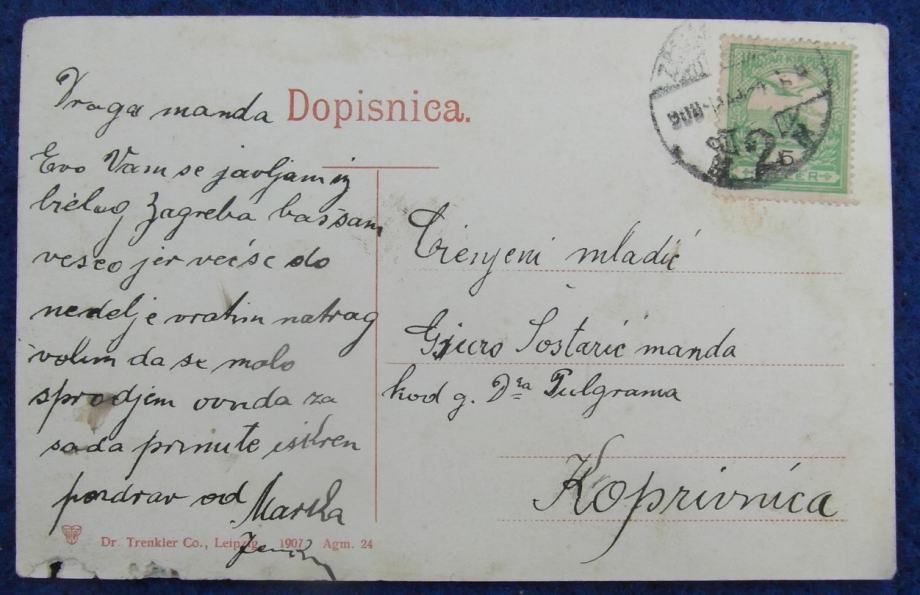 Draga manda
Dopisnica.
Evo Vam se javljam iz
bielog Zagreba baš sam
veseo jer već se do
nedelje vratim natrag
volim da se malo
sprodjem ovuda za
sada primite iskren
pozdrav od Marka
Dr. Trenkler Co., Leipzig. 1907 Agm. 24
Cienjeni mladić
Gjuro Šostarić manda
kod g. Dra Pulgrama
Koprivnica
5